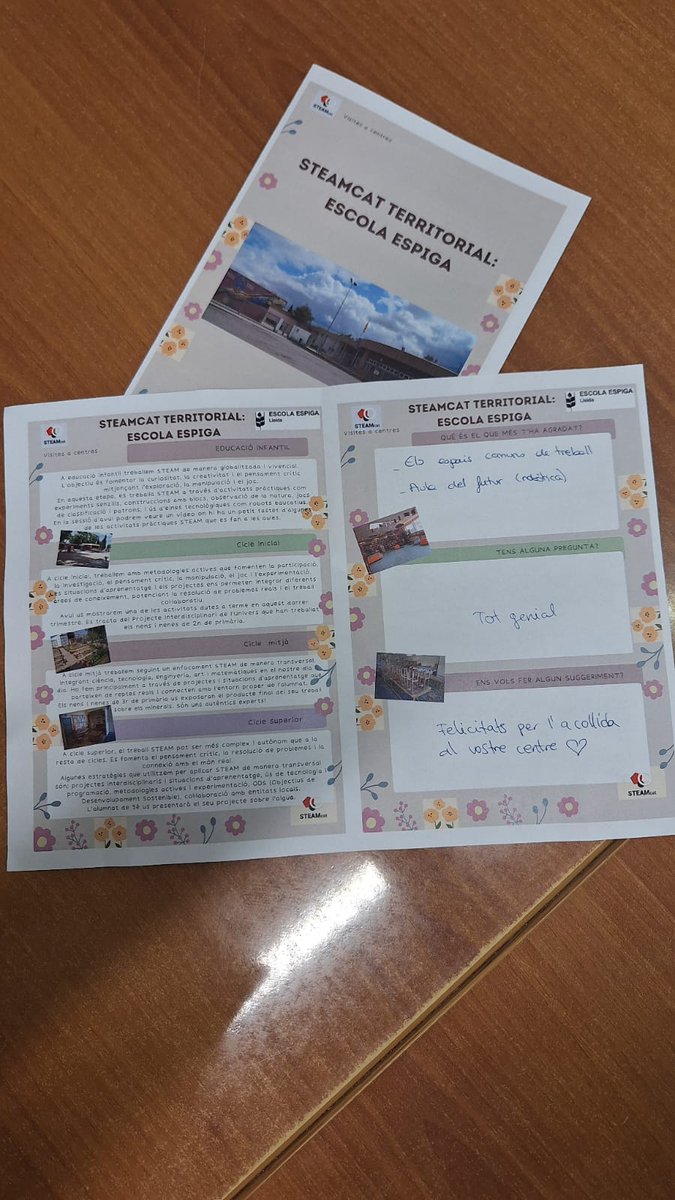 STEAMcat
Visites a centres
STEAMCAT TERRITORIAL:
ESCOLA ESPIGA
STEAMcat
Visites a centres
STEAMCAT TERRITORIAL:
ESCOLA ESPIGA
ESCOLA ESPIGA
Lleida
EDUCACIÓ INFANTIL
A educació infantil treballem STEAM de manera globalitzada i vivencial.
L'objectiu és fomentar la curiositat, la creativitat i el pensament crític,
mitjançant, l'exploració, la manipulació i el joc.
En aquesta etapa, es treballa STEAM a través d'activitats pràctiques com
experiments senzills, construccions amb blocs, observació de la natura, jocs
de classificació i patrons, i ús d'eines tecnològiques com robots educatius.
En la sessió d'avui podrem veure un vídeo on hi ha un petit tastet d'algunes
de les activitats pràctiques STEAM que es fan a les aules.
Cicle Inicial
A cicle inicial, treballem amb metodologies actives que fomenten la participació,
la investigació, el pensament crític, la manipulació, el joc i l'experimentació.
Les situacions d'aprenentatge i els projectes ens permeten integrar diferents
àrees de coneixement, potenciant la resolució de problemes reals i el treball
col·laboratiu.
Avui us mostrarem una de les activitats dutes a terme en aquest darrer
trimestre. Es tracta del Projecte Interdisciplinari de l'univers que han treballat
els nens i nenes de 2n de primària.
Cicle mitjà
A cicle mitjà treballem seguint un enfocament STEAM de manera transversal
integrant ciència, tecnologia, enginyeria, art i matemàtiques en el nostre dia a
dia. Ho fem principalment a través de projectes i situacions d'aprenentatge que
parteixen de reptes reals i connecten amb l'entorn proper de l'alumnat.
Els nens i nenes de 3r de primària us exposaran el producte final del seu treball
sobre els minerals. Són uns autèntics experts!
Cicle Superior
A cicle superior, el treball STEAM pot ser més complex i autònom que a la
resta de cicles. Es fomenta el pensament crític, la resolució de problemes i la
connexió amb el món real.
Algunes estratègies que utilitzem per aplicar STEAM de manera transversal
són: projectes interdisciplinaris i situacions d'aprenentatge, ús de tecnologia i
programació, metodologies actives i experimentació, ODS (Objectius de
Desenvolupament Sostenible), col·laboració amb entitats locals.
L'alumnat de 5è us presentarà el seu projecte sobre l'aigua.
STEAMcat
STEAMcat
Visites a centres
STEAMCAT TERRITORIAL:
ESCOLA ESPIGA
ESCOLA ESPIGA
Lleida
QUÈ ÉS EL QUE MÉS T'HA AGRADAT?
- Els espais comuns de treball
- Aula del futur (robòtica)
TENS ALGUNA PREGUNTA?
Tot genial
ENS VOLS FER ALGUN SUGGERIMENT?
Felicitats per l'acollida
al vostre centre ♡
STEAMcat